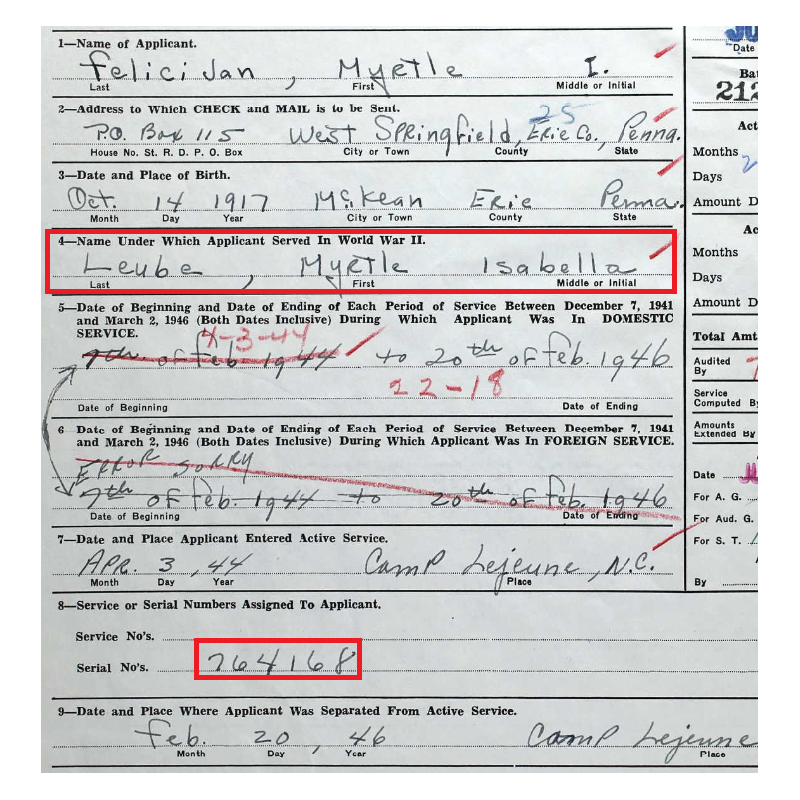 1—Name of Applicant.
Felicijan, Myrtle I.
Last First Middle or Initial
Date
2—Address to Which CHECK and MAIL is to be Sent.
25
P.O. Box 115 West Springfield, Erie Co., Penna.
House No. St. R. D. P. O. Box City or Town County State
212
Months
Days
Amount D
3—Date and Place of Birth.
Oct. 14 1917 McKean Erie Penna.
Month Day Year City or Town County State
4—Name Under Which Applicant Served In World War II.
Leube, Myrtle Isabella
Last First Middle or Initial
Months
Days
Amount D
5—Date of Beginning and Date of Ending of Each Period of Service Between December 7, 1941
and March 2, 1946 (Both Dates Inclusive) During Which Applicant Was In DOMESTIC
SERVICE.
4-3-44
7th of Feb 1944 to 20th of Feb. 1946
22-18
Date of Beginning Date of Ending
Total Amt
Audited
By
Service
Computed By
Amounts
Extended By
6 Date of Beginning and Date of Ending of Each Period of Service Between December 7, 1941
and March 2, 1946 (Both Dates Inclusive) During Which Applicant Was In FOREIGN SERVICE.
ERROR SORRY
7th of Feb. 1944 to 20th of Feb. 1946
Date of Beginning Date of Ending
Date
For A. G.
For Aud. G.
For S. T.
By
7—Date and Place Applicant Entered Active Service.
Apr. 3, 44 Camp Lejeune, N.C.
Month Day Year Place
8—Service or Serial Numbers Assigned To Applicant.
Service No's.
Serial No's. 764168
9—Date and Place Where Applicant Was Separated From Active Service.
Feb. 20, 46 Camp Lejeune
Month Day Year Place